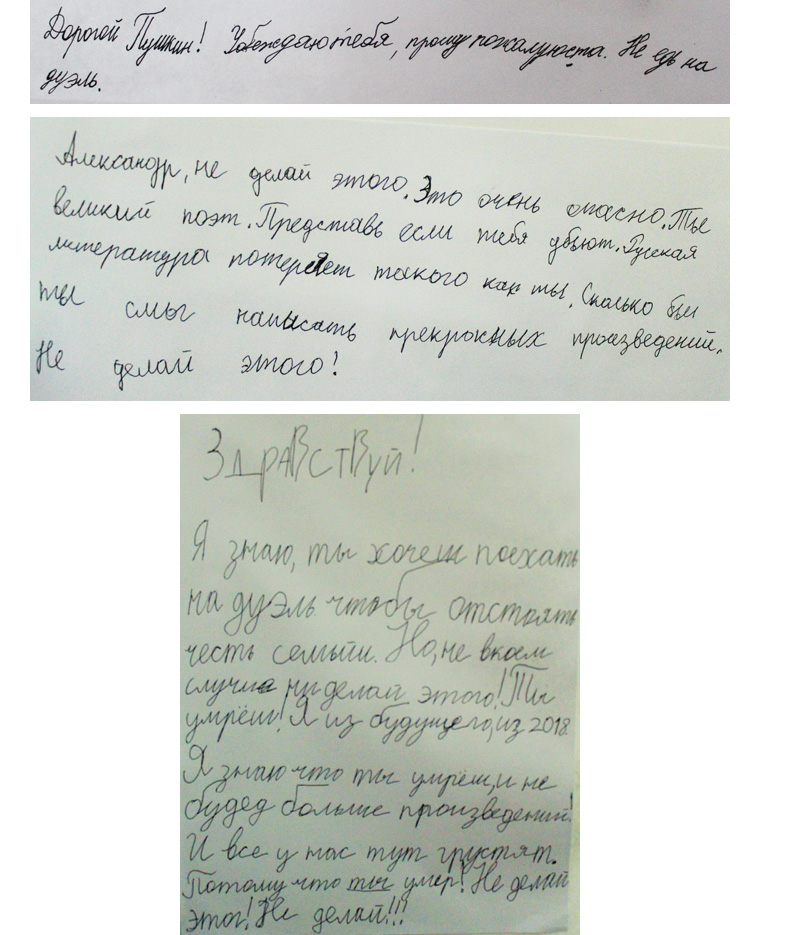 Дорогой Пушкин! Убеждаю тебя, прошу пожалуюста. Не едь на
дуэль.
Александр, не делай этого. Это очень опасно. Ты
великий поэт. Представь если тебя убьют. Русская
литература потеряет такого как ты. Сколько бы
ты смог написать прекрокных произведений.
Не делай этого!
Здравствуй!
Я знаю, ты хочеш поехать
на дуэль чтобы отстоять
честь семьи. Но, не вкоем
случие ни делай этого! Ты
умрёш! Я из будущего, из 2018.
Я знаю что ты умрёш, и не
будед больше произведений!
И все у нас тут грустят.
Потому что ты умер! Не делай
этог! Не делай!!!